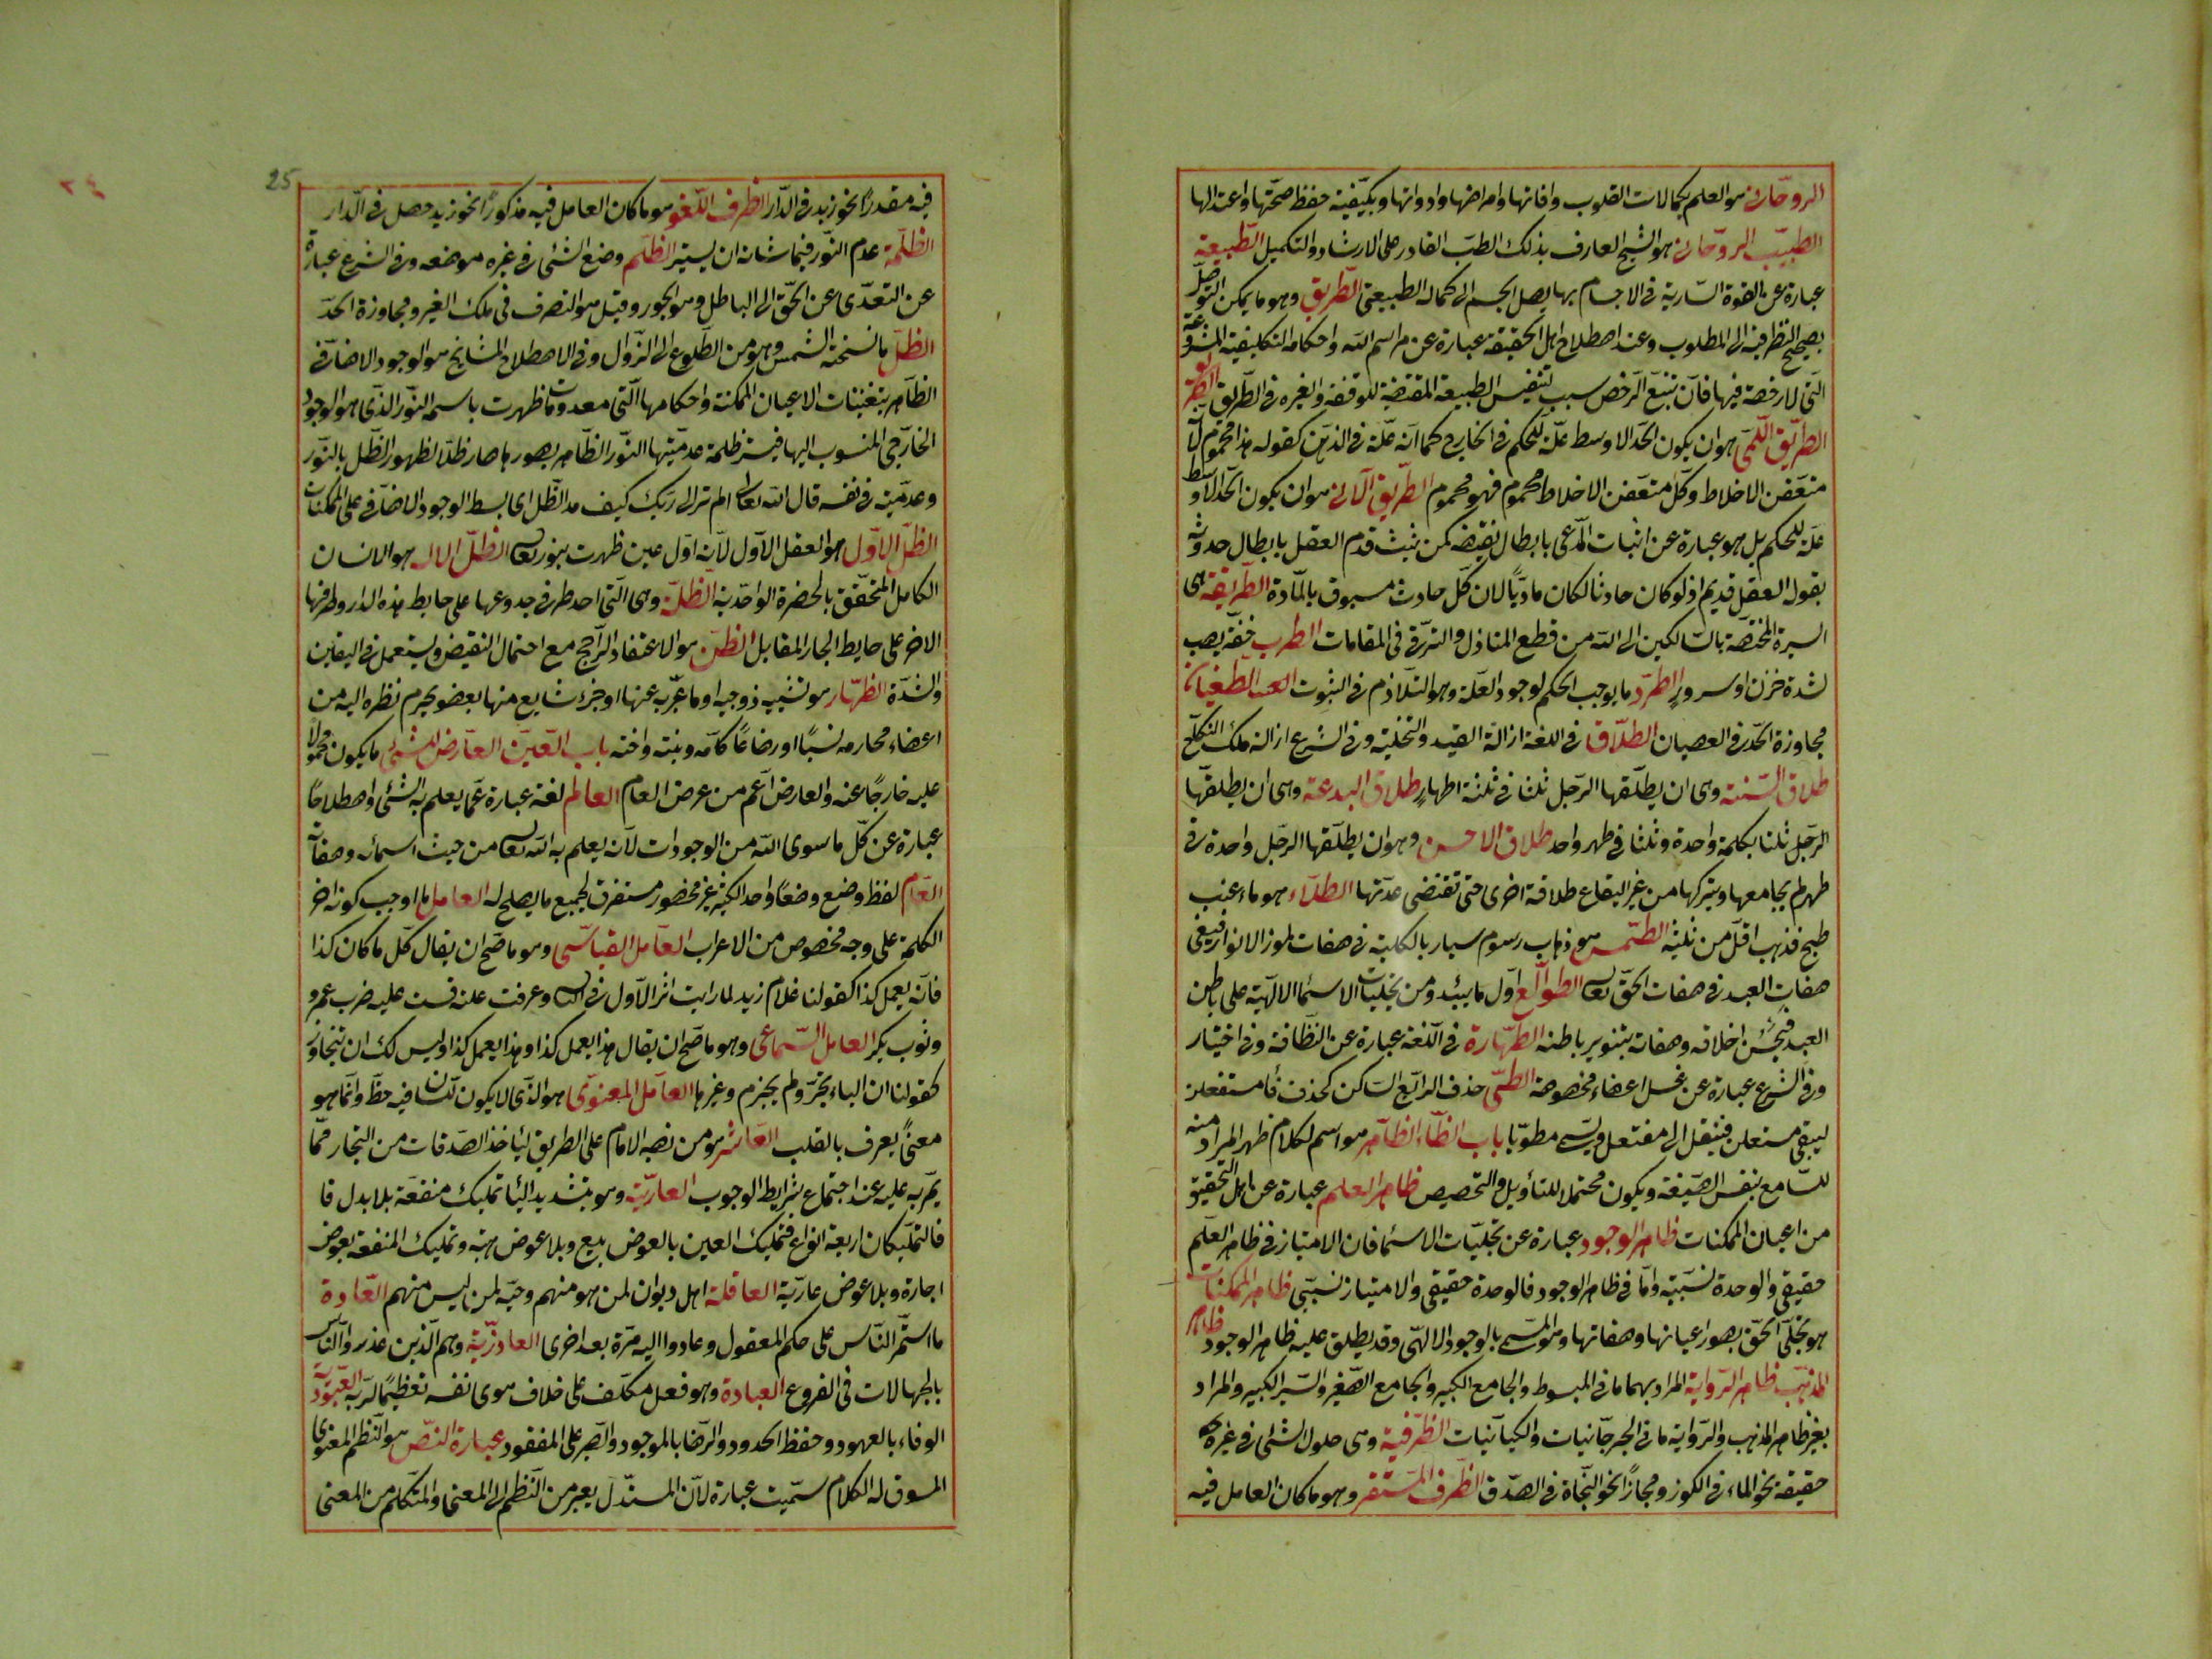 الروحانى هو العلم بكمالات القلوب وافاتها وامراضها وادوائها وبكيفية حفظ صحتها واعتدالها
الطبيب الروحانى هو الشيخ العارف بذلك الطب القادر على الارشاد والتكميل الطبيعة
عبارة عن القوة السارية فى الاجسام بها يصل الجسم الى كماله الطبيعى الطريق وهو ما يمكن التوصل
بصحيح النظر فيه الى المطلوب وعند اصطلاح اهل الحقيقة عبارة عن مراسم الله واحكامه التكليفية المشروعة
التى لا رخصة فيها فان تتبع الرخص سبب لتنفيس الطبيعة المقتضية للوقفة والفترة فى الطريق
الطريق اللمى هو ان يكون الحد الاوسط علة للحكم فى الخارج كما انه علة فى الذهن كقوله هذا محموم لانه
متعفن الاخلاط وكل متعفن الاخلاط محموم فهو محموم الطريق الانى هو ان يكون الحد الاوسط
علة للحكم بل هو عبارة عن اثبات المدعى بابطال نقيضه كمن يثبت قدم العقل بابطال حدوثه
بقوله العقل قديم اذ لو كان حادثا لكان ماديا لان كل حادث مسبوق بالمادة الطريقة هى
السيرة المختصة بالسالكين الى الله من قطع المنازل والترقى فى المقامات الطرب خفة يصيب
لشدة حزن او سرور الطرد ما يوجب الحكم لوجود العلة وهو التلازم فى الثبوت الطغيان
مجاوزة الحد فى العصيان الطلاق فى اللغة ازالة القيد والتخلية وفى الشرع ازالة ملك النكاح
طلاق السنة وهى ان يطلقها الرجل ثلثا فى ثلثة اطهار طلاق البدعة وهى ان يطلقها
الرجل ثلثا بكلمة واحدة وثلثا فى طهر واحد طلاق الاحسن وهو ان يطلقها الرجل واحدة فى
طهر لم يجامعها ويتركها من غير ايقاع طلاقة اخرى حتى تنقضى عدتها الطلاء هو ماء عنب
طبخ فذهب اقل من ثلثيه الطمس هو ذهاب رسوم سيار بالكلية فى صفات نور الانوار فيفنى
صفات العبد فى صفات الحق تعالى الطوالع اول ما يبدو من تجليات الاسماء الالهية على باطن
العبد فيحسن اخلاقه وصفاته بتنوير باطنه الطهارة فى اللغة عبارة عن النظافة وفى اختيار
وفى الشرع عبارة عن غسل اعضاء مخصوصة الطى حذف الرابع الساكن كحذف فا مستفعلن
ليبقى مستعلن فينقل الى مفتعلن ويسمى مطويا باب الظاء الظاهر هو اسم لكلام ظهر المراد منه
للسامع بنفس الصيغة ويكون محتملا للتأويل والتخصيص ظاهر العلم عبارة عن اهل التحقيق
من اعيان الممكنات ظاهر الوجود عبارة عن تجليات الاسماء فان الامتياز فى ظاهر العلم
حقيقى والوحدة نسبية واما فى ظاهر الوجود فالوحدة حقيقى والامتياز نسبى ظاهر الممكنات
هو تجلى الحق بصور اعيانها وصفاتها وهو المسمى بالوجود الالهى وقد يطلق عليه ظاهر الوجود ظاهر
المذهب ظاهر الرواية المراد بهما ما فى المبسوط والجامع الكبير والجامع الصغير والسير الكبير والمراد
بغير ظاهر المذهب والرواية ما فى الجرجانيات والكيسانيات الظرفية وهى حلول الشئ فى غيره
حقيقة نحو الماء فى الكوز ومجازا نحو النجاة فى الصدق الظرف المستقر وهو ما كان العامل فيه
25
فيه مقدرا نحو زيد فى الدار الظرف اللغو هو ما كان العامل فيه مذكورا نحو زيد حصل فى الدار
الظلمة عدم النور فيما شانه ان يستنير الظلم وضع الشئ فى غيره موضعه وفى الشرع عبارة
عن التعدى عن الحق الى الباطل وهو الجور وقيل هو التصرف فى ملك الغير ومجاوزة الحد
الظل ما نسخته الشمس وهو من الطلوع الى الزوال وفى الاصطلاح المشايخ هو الوجود الاضافى
الظاهر بتعينات الاعيان الممكنة واحكامها التى معدومات ظهرت باسمه النور الذى هو الوجود
الخارجى المنسوب اليها فيستر ظلمة عدميتها النور الظاهر بصورها صار ظلا لظهور الظل بالنور
وعدميته فى نفسه قال الله تعالى الم تر الى ربك كيف مد الظل اى بسط الوجود الاضافى على الممكنات
الظل الاول هو العقل الاول لانه اول عين ظهرت بنوره تعالى الظل الاله هو الانسان
الكامل المتحقق بالحضرة الواحدية الظلة وهى التى احد طرفى جذوعها على حايط هذه الدار وطرفها
الاخر على حايط الجار المقابل الظن هو الاعتقاد الراجح مع احتمال النقيض ويستعمل فى اليقين
والشدة الظهار هو تشبيه زوجته او ما عبر به عنها او جزء شايع منها بعضو يحرم نظره اليه من
اعضاء محارمه نسبا او رضاعا كامه وبنته واخته باب العين العارض للشئ ما يكون محمولا
عليه خارجا عنه والعارض اعم من عرض العام العالم لغة عبارة عما يعلم به الشئ واصطلاحا
عبارة عن كل ما سوى الله من الوجودات لانه يعلم به الله تعالى من حيث اسمائه وصفاته
العام لفظ وضع وضعا واحدا لكثير غير محصور مستغرق لجميع ما يصلح له العامل ما اوجب كون اخر
الكلمة على وجه مخصوص من الاعراب العامل القياسى وهو ما صح ان يقال كل ما كان كذا
فانه يعمل كذا كقولنا غلام زيد لما رايت اثر الاول فى الثانى وعرفت علته قست عليه ضرب عمرو
وثوب بكر العامل السماعى وهو ما صح ان يقال هذا يعمل كذا وهذا يعمل كذا وليس لك ان تتجاوز
كقولنا ان الباء يجر ولم يجزم وغيرها العامل المعنوى هو الذى لا يكون للسان فيه حظ وانما هو
معنى يعرف بالقلب العاشر هو من نصبه الامام على الطريق لياخذ الصدقات من التجار مما
يمر به عليه عند اجتماع شرايط الوجوب العارية وهو بتشديد اليا تمليك منفعة بلا بدل فا
فالتمليكات اربعة انواع فتمليك العين بالعوض بيع وبلا عوض هبة وتمليك المنفعة بعوض
اجارة وبلا عوض عارية العاقلة اهل ديوان لمن هو منهم وحيه لمن ليس منهم العادة
ما استمر الناس على حكم المعقول وعادوا اليه مرة بعد اخرى العاذرية وهم الذين عذروا الناس
بالجهالات فى الفروع العبادة وهو فعل مكلف على خلاف هوى نفسه تعظيما لربه العبودية
الوفاء بالعهود وحفظ الحدود والرضا بالموجود والصبر على المفقود عبارة النص هو النظم المعنوى
المسوق له الكلام سميت عبارة لان المستدل يعبر من النظم الى المعنى والمتكلم من المعنى